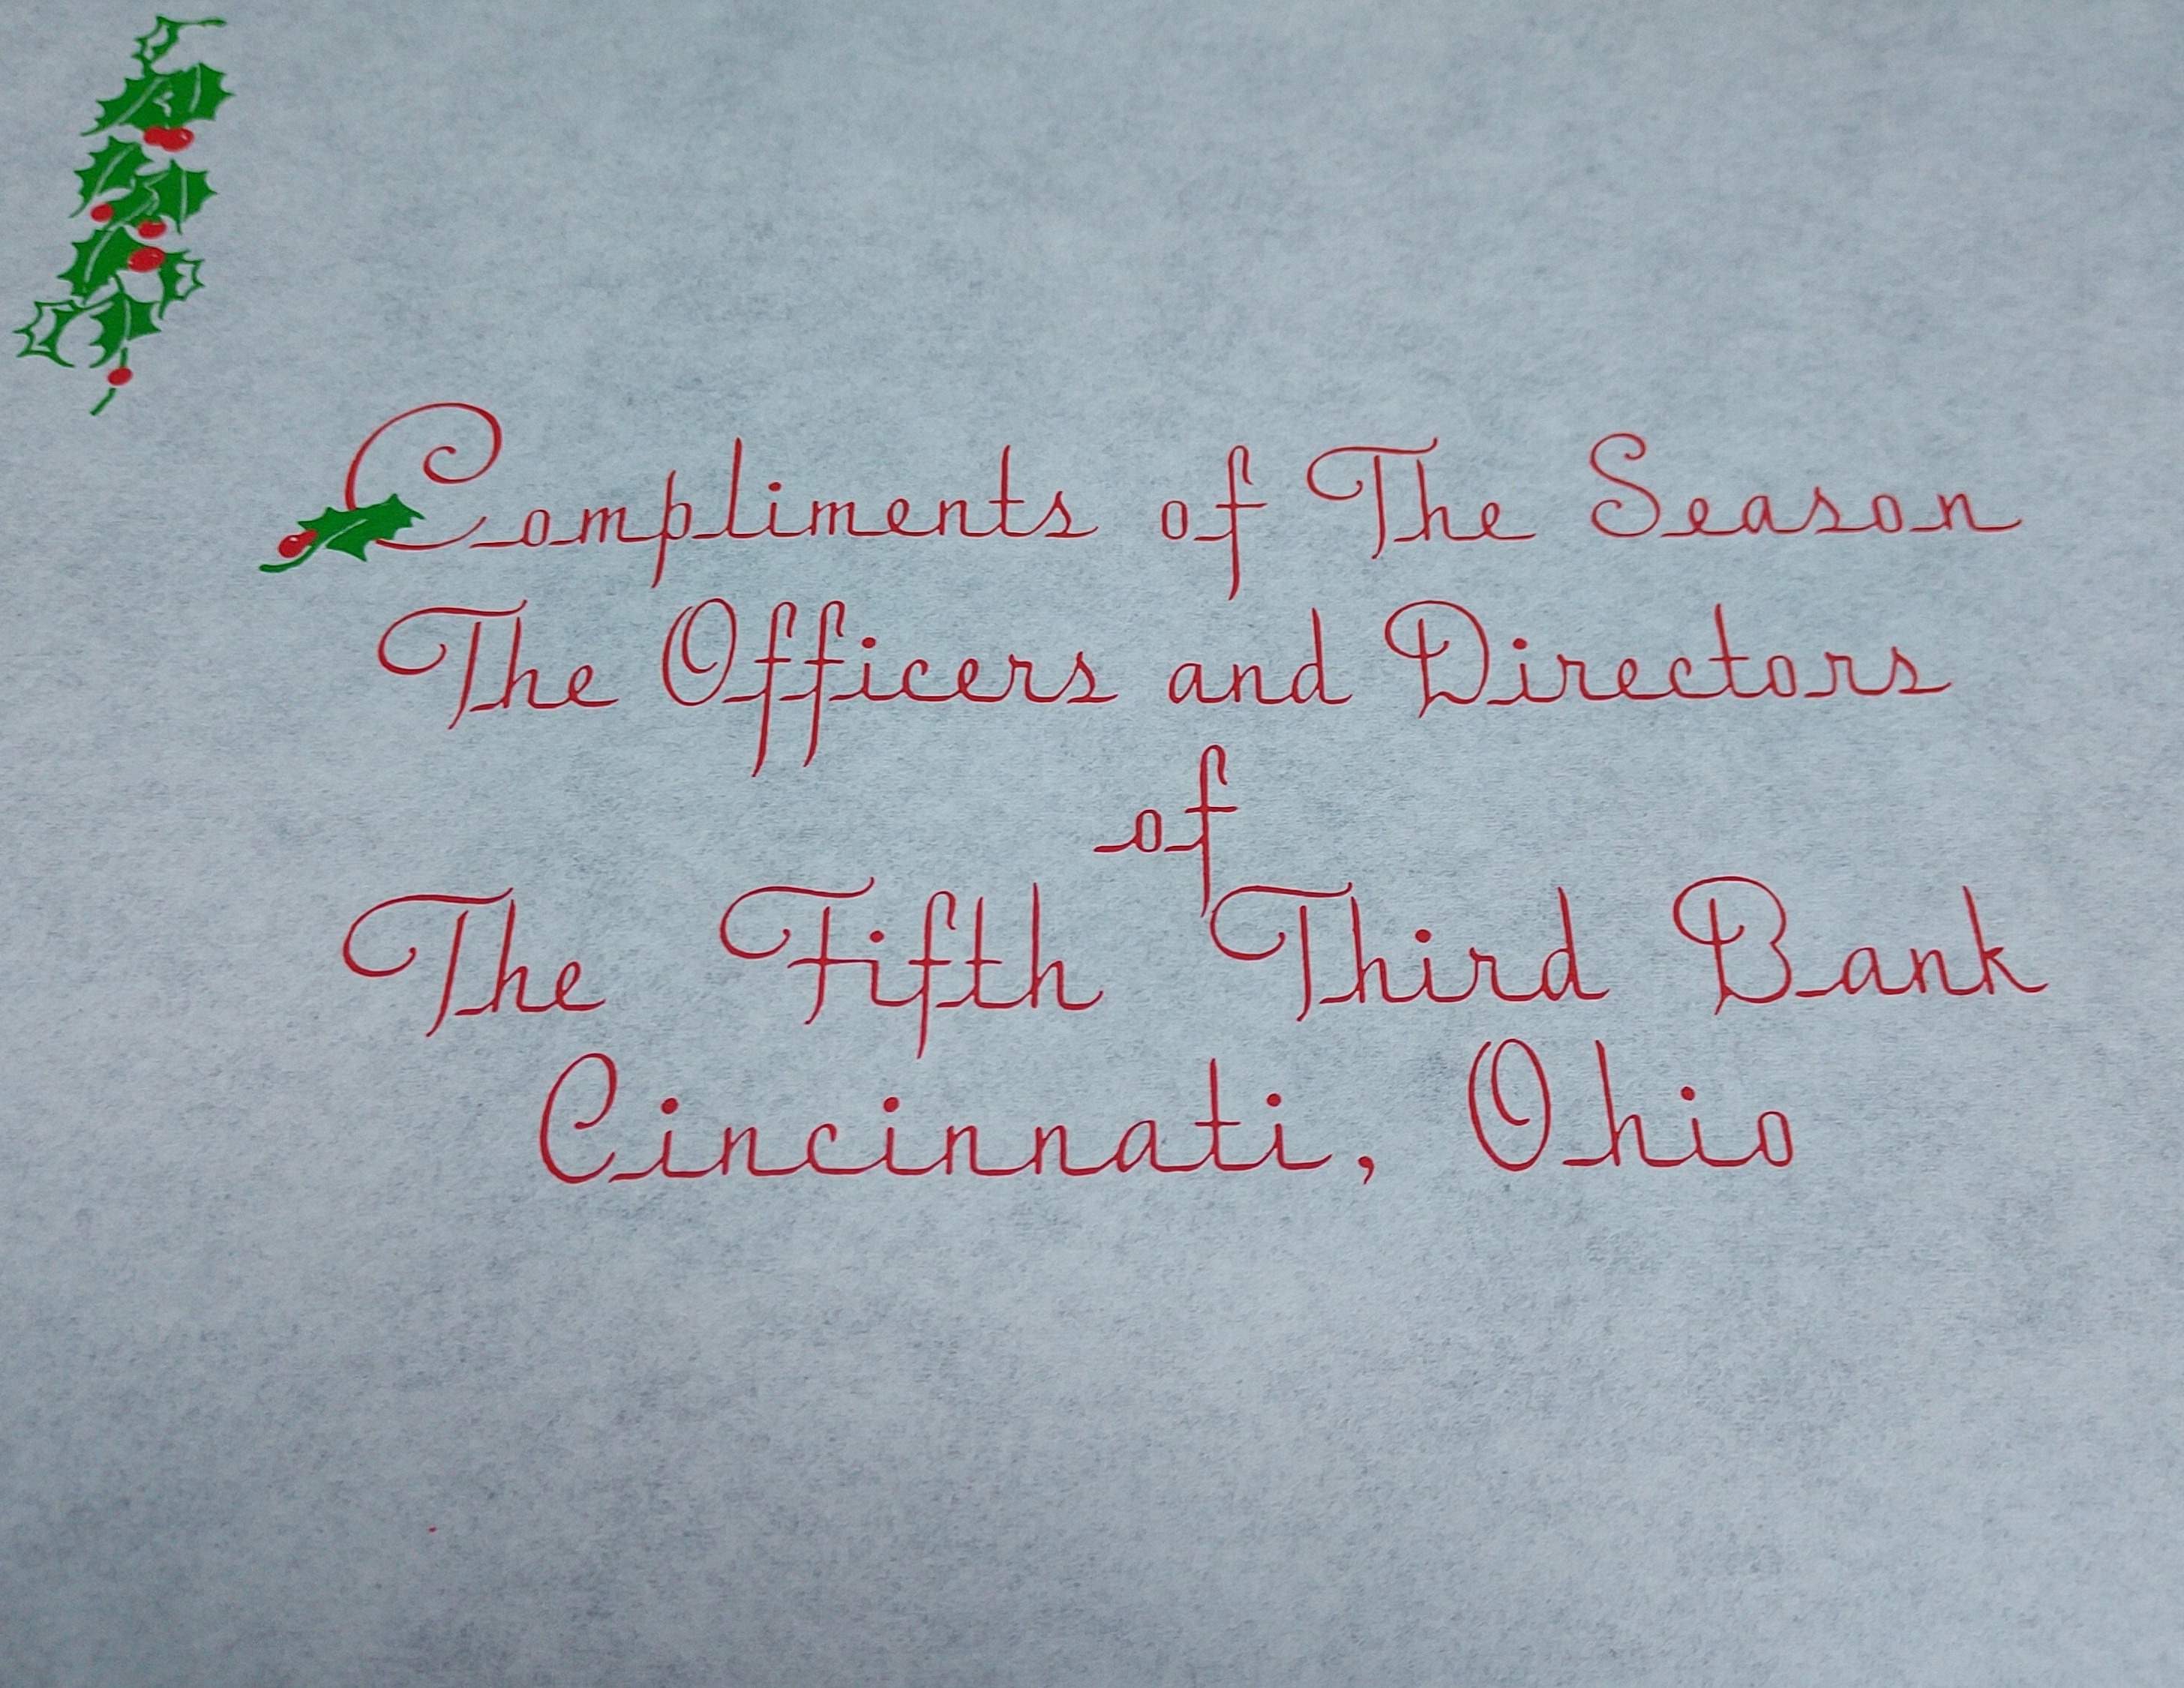 Compliments of The Season
The Officers and Directors
of
The Fifth Third Bank
Cincinnati, Ohio